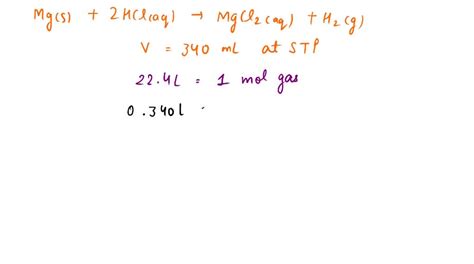 Mg(s) + 2HCl(aq) → MgCl2(aq) + H2(g)
V = 340 mL at STP
22.4L = 1 mol gas
0.340L